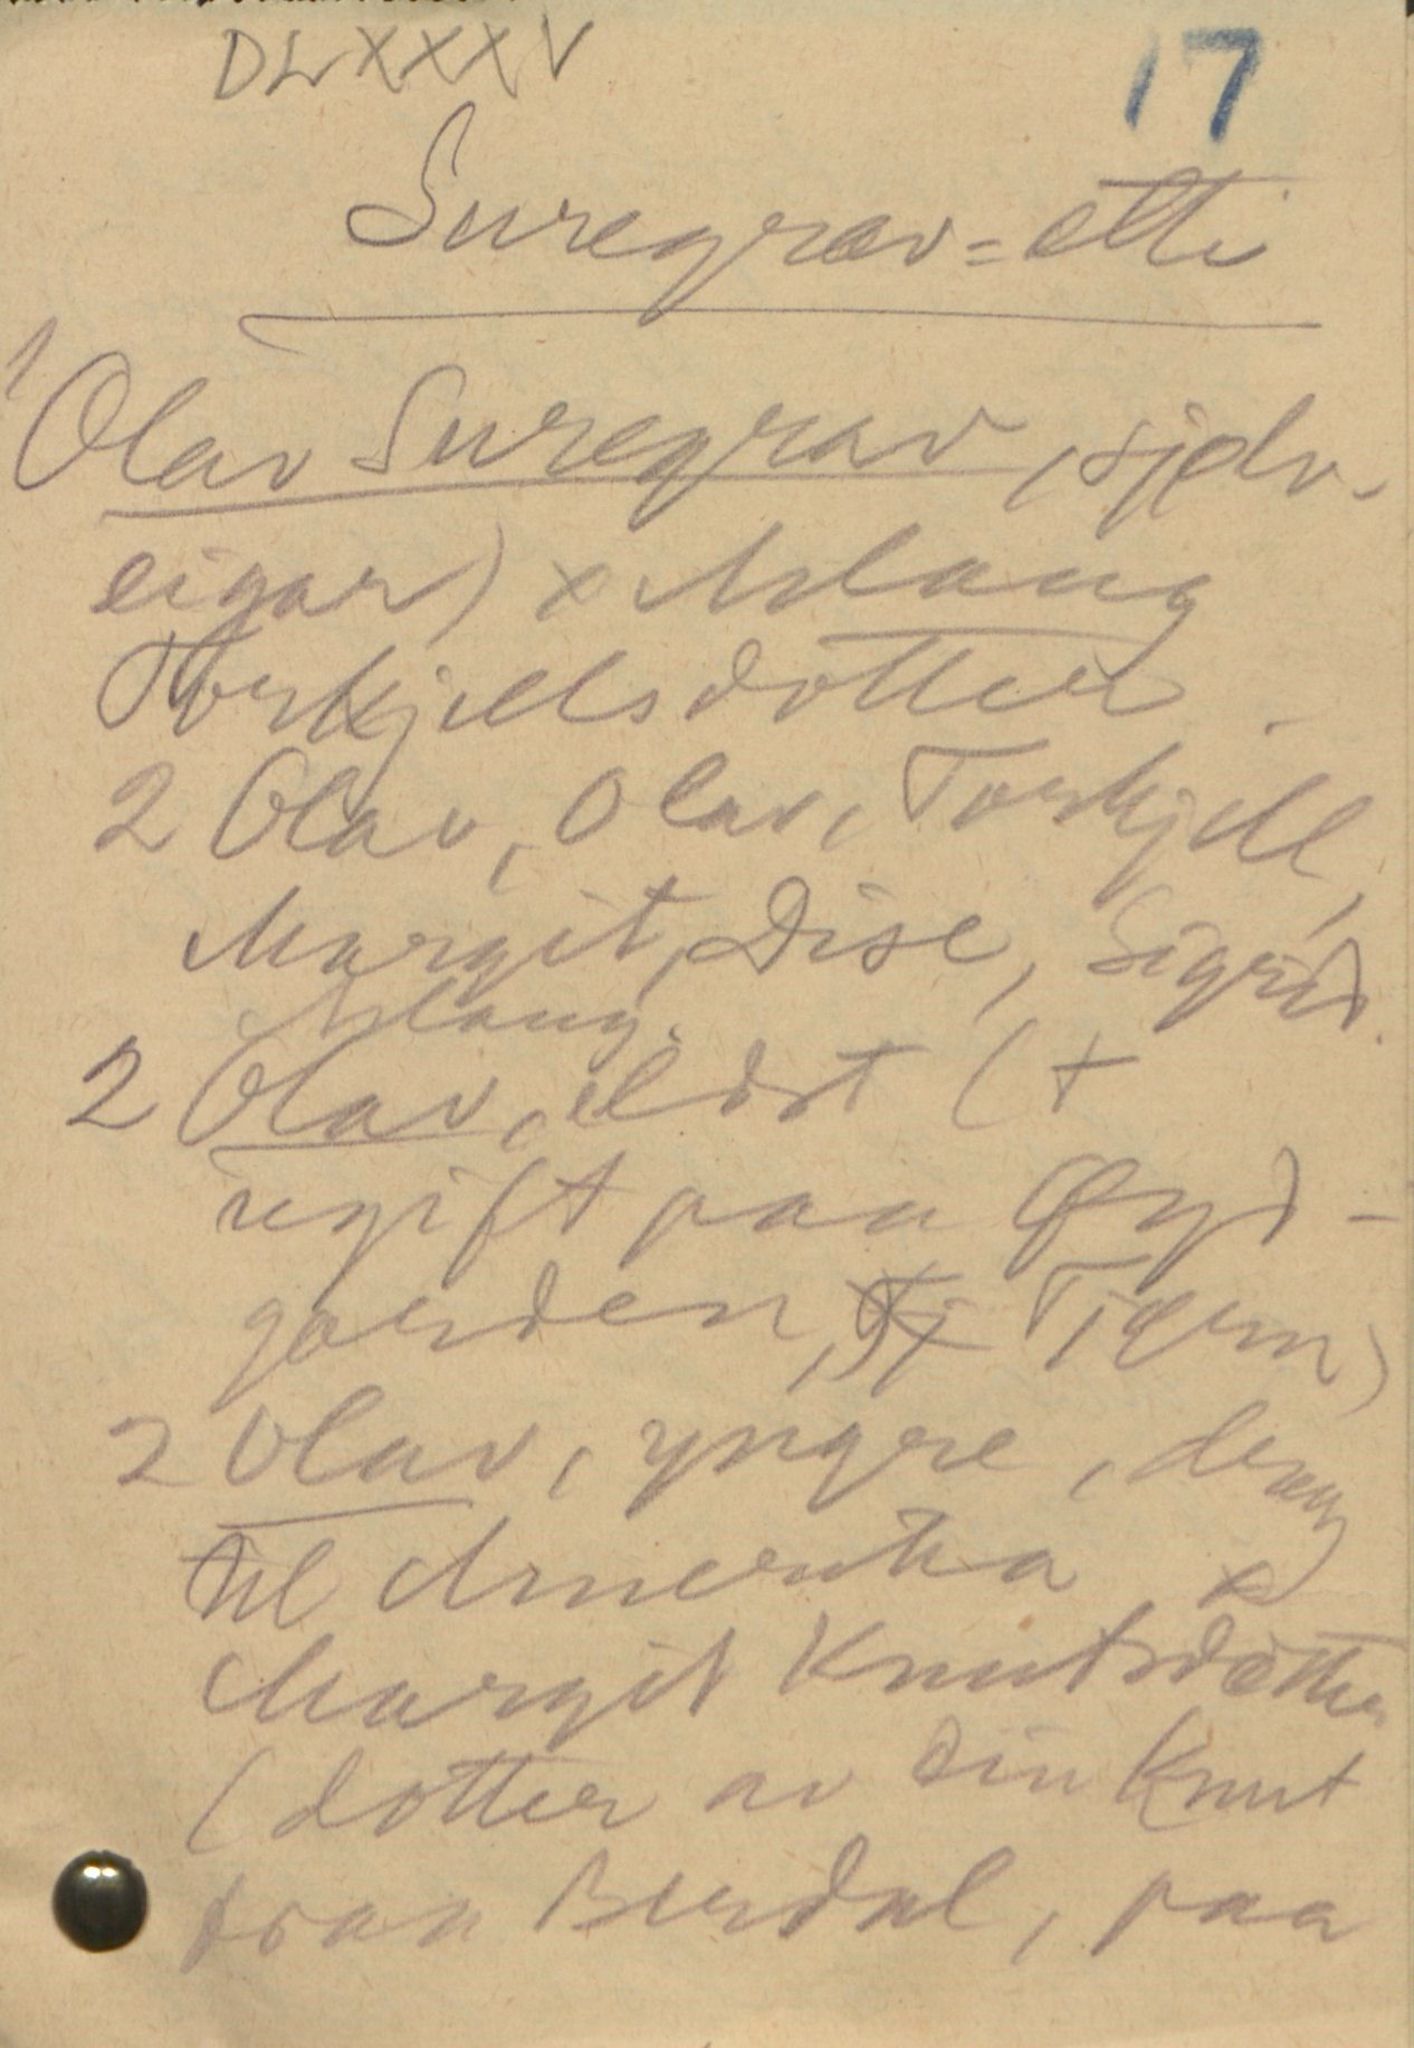 DLXXXV
17
Suregrav-etti
1 Olav Suregrav, sjølv-
eigar) x Aslaug
Torkjellsdotter.
2 Olav, Olav, Torkjell,
Margit, Dise, Sigrid.
Aslaug.
2 Olav, eldst (+
ugift paa Øygarden,
garden, Tjørn)
2 Olav, yngre,
til Amerika x
Margit Knutsdotter
(dotter av ein Knut
fraa Berdal, paa